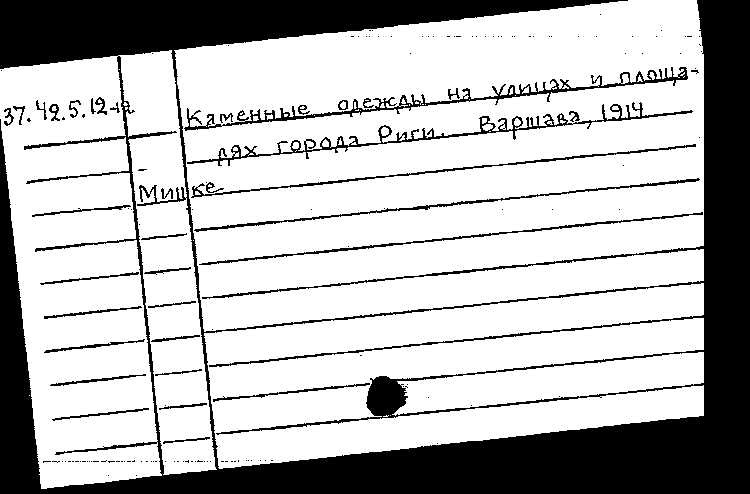 37.42.5.12-1a Каменные одежды на улицах и площа-
дях города Риги. Варшава, 1914
Мишке